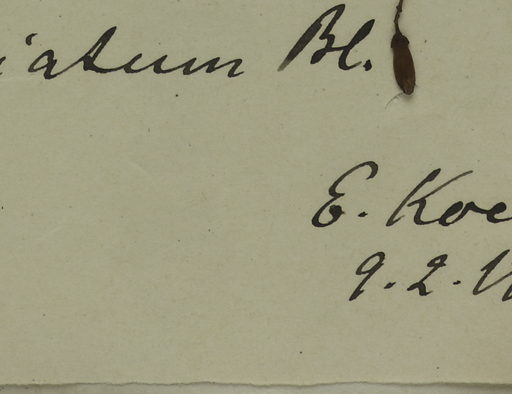 iatum Bl.
E. Koe
9.2.